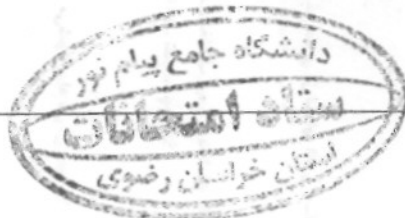 دانشگاه جامع پیام نور
ستاد امتحانات
استان خراسان رضوی